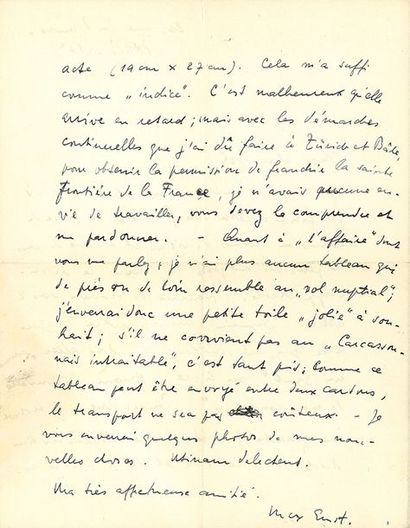 acte (19cm x 27cm). Cela m'a suffi
comme „indice". C'est malheureux qu'elle
arrive en retard; mais avec les démarches
continuelles que j'ai dû faire à Zürich et Bâle,
pour obtenir la permission de franchir la sainte
frontière de la France, je n'avais aucune en-
vie de travailler, vous devez le comprendre et
me pardonner. — Quant à „l'affaire" dont
vous me parlez, je n'ai plus aucun tableau qui
de près ou de loin ressemble au „vol nuptial";
j'enverrai donc une petite toile „jolie" à sou-
hait; s'il ne convient pas au „Carcasson-
nais intraitable", c'est tant pis; Comme ce
tableau peut être envoyé entre deux cartons,
le transport ne sera pas coûteux. — Je
vous enverrai quelques photos de mes nou-
velles choses. Utinam delectent.
Ma très affectueuse amitié.
Max Ernst.